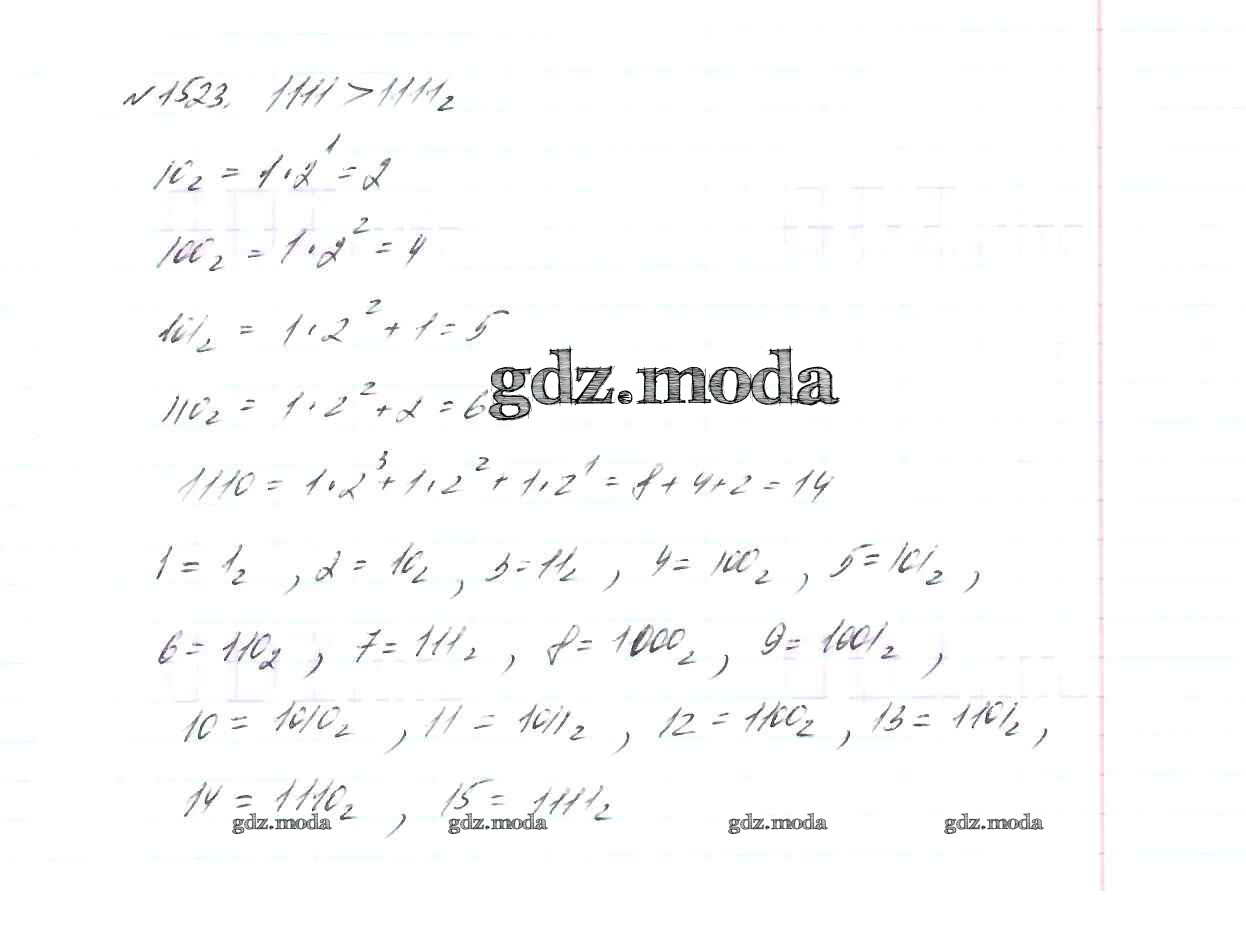 №1523. 1111 > 1111₂
10₂ = 1·2¹ = 2
100₂ = 1·2² = 4
101₂ = 1·2² + 1 = 5
gdz.moda
110₂ = 1·2² + 2 = 6
1110 = 1·2³ + 1·2² + 1·2¹ = 8 + 4 + 2 = 14
1 = 1₂ , 2 = 10₂ , 3 = 11₂ , 4 = 100₂ , 5 = 101₂ ,
6 = 110₂ , 7 = 111₂ , 8 = 1000₂ , 9 = 1001₂ ,
10 = 1010₂ , 11 = 1011₂ , 12 = 1100₂ , 13 = 1101₂ ,
14 = 1110₂ , 15 = 1111₂
gdz.moda gdz.moda gdz.moda gdz.moda